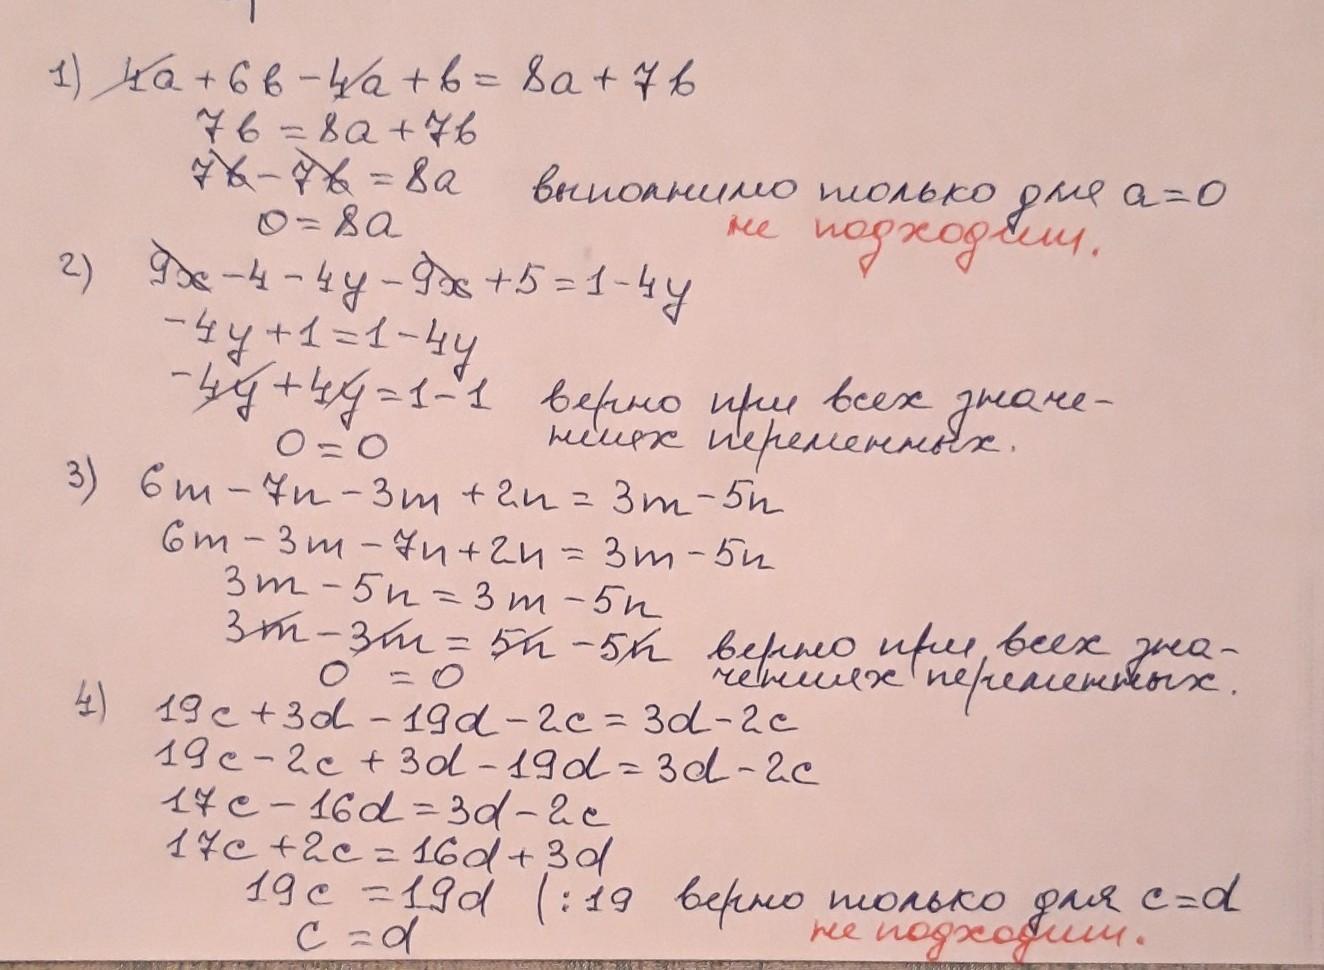 1) 4a + 6b - 4a + b = 8a + 7b
7b = 8a + 7b
7b - 7b = 8a
выполнимо только для a = 0
0 = 8a
не подходит.
2) 9x - 4 - 4y - 9x + 5 = 1 - 4y
-4y + 1 = 1 - 4y
-4y + 4y = 1 - 1 верно при всех значе-
0 = 0 ниях переменных.
3) 6m - 7n - 3m + 2n = 3m - 5n
6m - 3m - 7n + 2n = 3m - 5n
3m - 5n = 3m - 5n
3m - 3m = 5n - 5n верно при всех зна-
0 = 0 чениях переменных.
4) 19c + 3d - 19d - 2c = 3d - 2c
19c - 2c + 3d - 19d = 3d - 2c
17c - 16d = 3d - 2c
17c + 2c = 16d + 3d
19c = 19d (: 19 верно только для c = d
c = d не подходит.